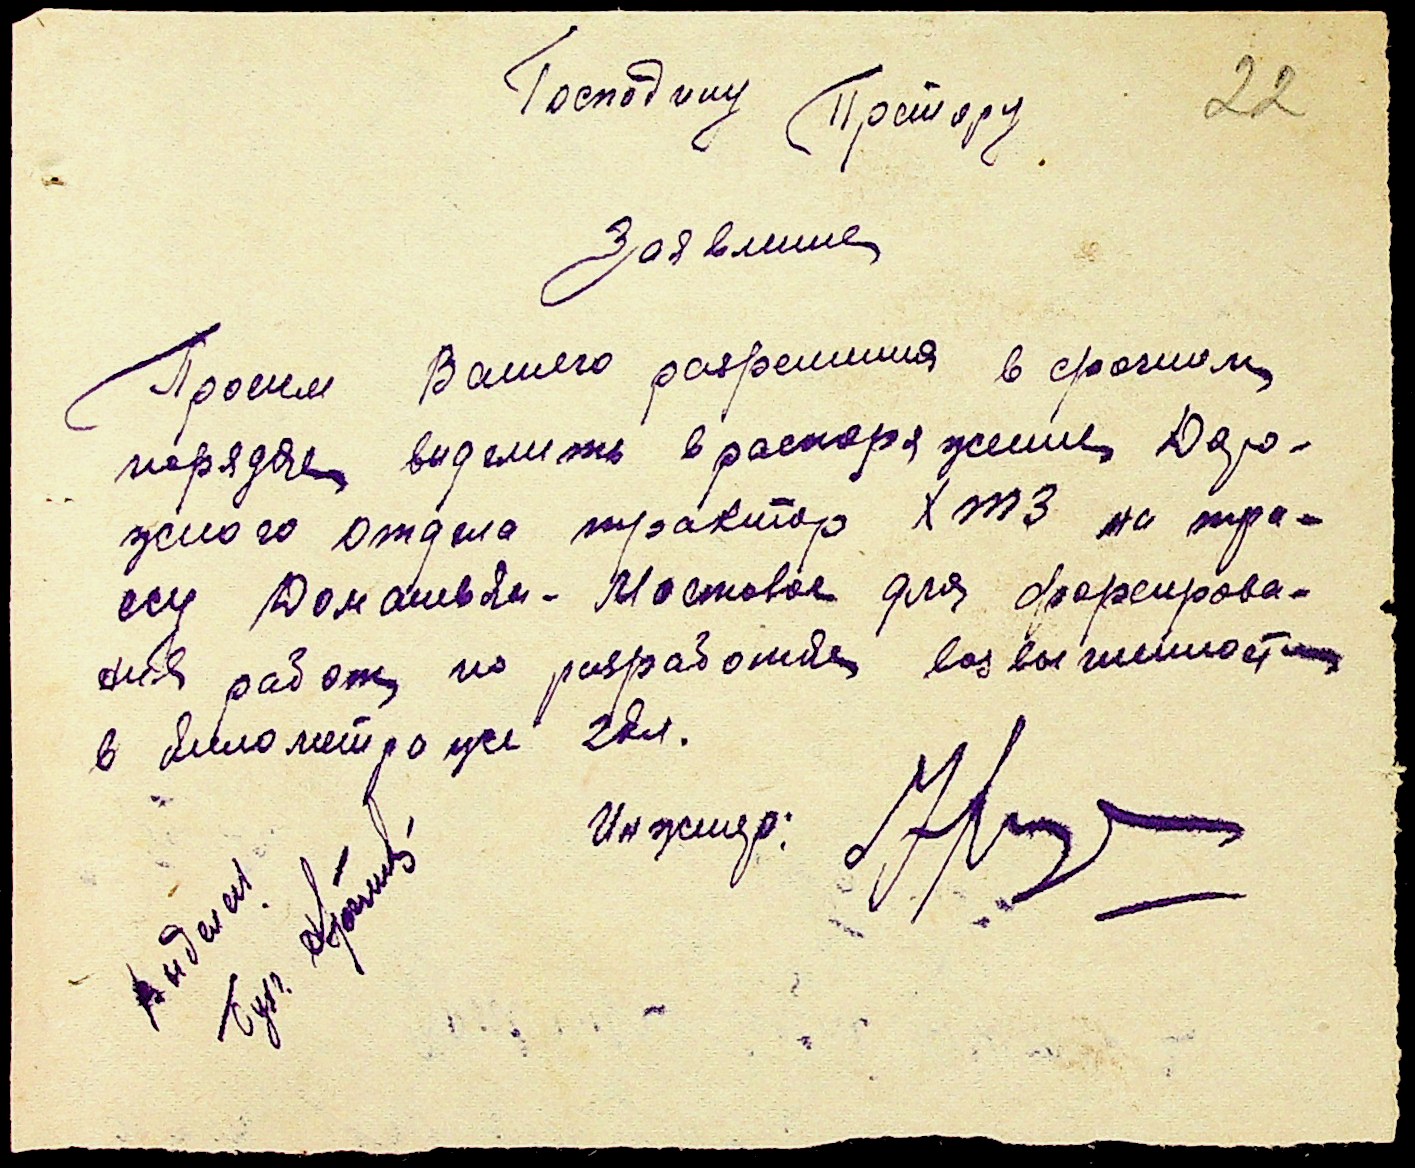 22
Господину Претору
Заявление
Просим Вашего разрешения в срочном
порядке выделить в распоряжение Доро-
жного отдела трактор ХТЗ на тра-
ссу Доманевки - Мостовое для форсирова-
ния работ по разработке возвышенности
в километраже 2км.
Инженер:
Выделен!